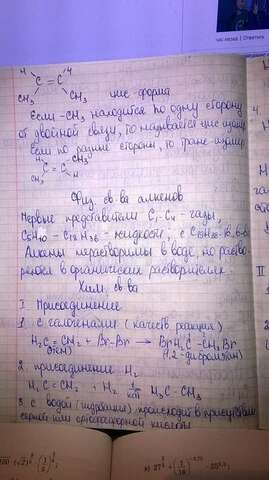 H H
C = C
CH₃ CH₃ цис-форма
Если -CH₃ находится по одну сторону
от двойной связи, то называется цис изомер
Если по разные стороны, то транс-изомер
C = C
CH₃ H
Физ. св-ва алкенов
Первые представители C₂-C₄ - газы,
C₅H₁₀ - жидкости, с
Алкены нерастворимы в воде, но раство-
в органических растворителях
Хим. св-ва
I Присоединение
1. с галогенами (качеств. реакция)
H₂C = CH₂ + Br-Br → BrH₂C - CH₂Br
(этен) (1,2-дибромэтан)
2. присоединение H₂
H₂C = CH₂ + H₂ H₃C - CH₃
3. с водой (гидратация) происходит в присутствии
серной или ортофосфорной кислоты